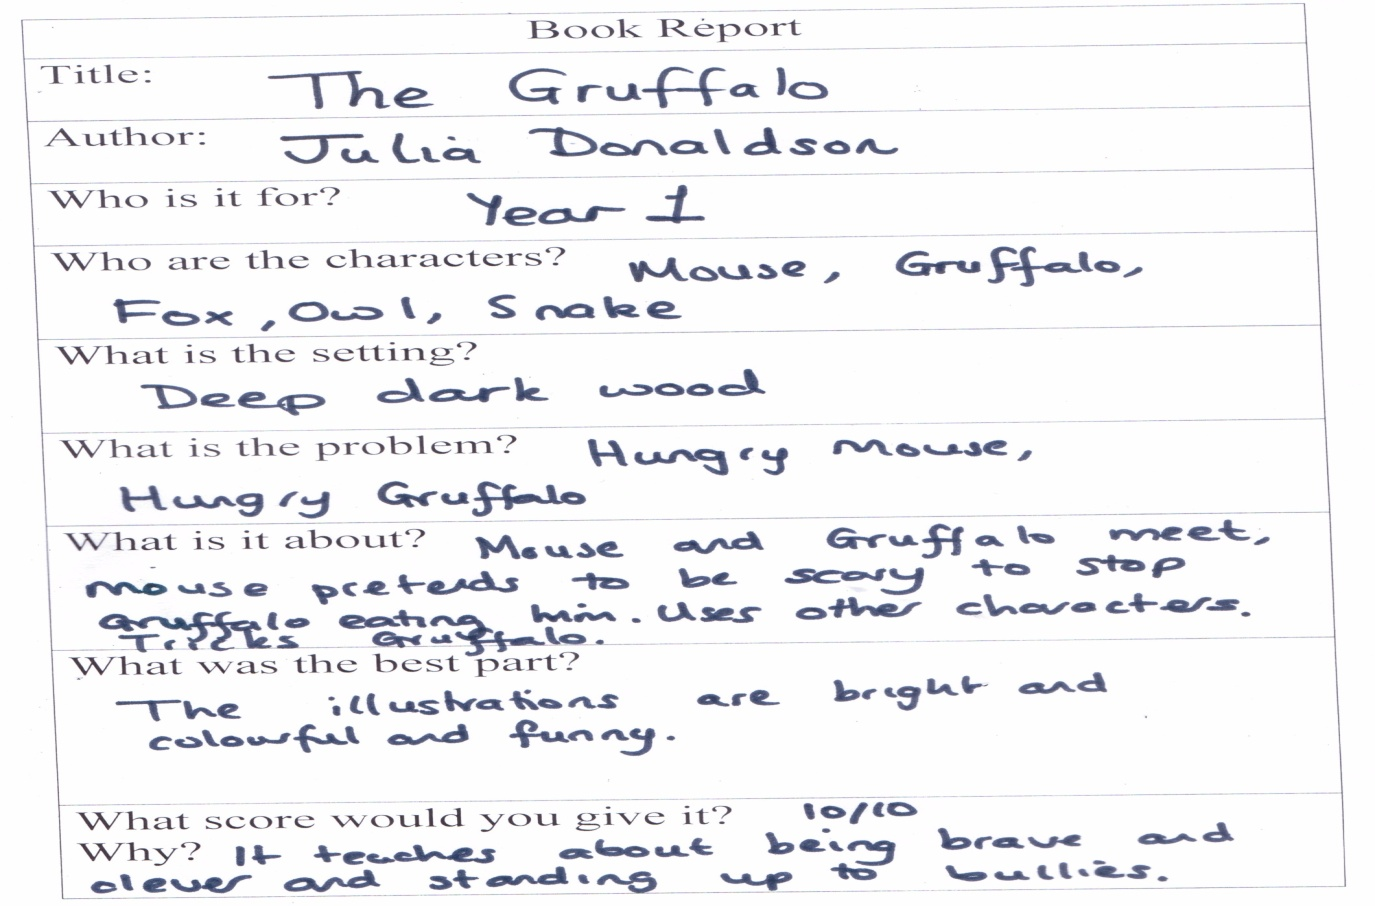 Book Report
Title: The Gruffalo
Author: Julia Donaldson
Who is it for? Year 1
Who are the characters? Mouse, Gruffalo,
Fox, Owl, Snake
What is the setting?
Deep dark wood
What is the problem? Hungry Mouse,
Hungry Gruffalo
What is it about? Mouse and Gruffalo meet,
mouse pretends to be scary to stop
Gruffalo eating him. Uses other characters.
Tricks Gruffalo.
What was the best part?
The illustrations are bright and
colourful and funny.
What score would you give it? 10/10
Why? It teaches about being brave and
clever and standing up to bullies.